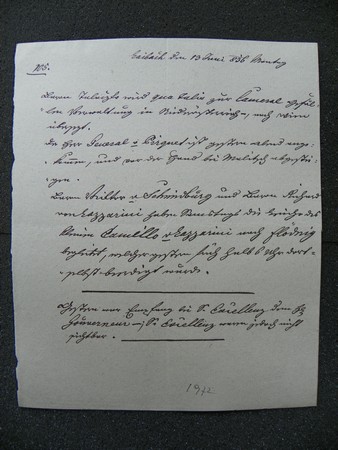 Laibach den 13 Juni 836 Montag
108.
Baron Taufrer wird qua talis zur Cameral Gefäl-
len Verwaltung in Niederösterreich, nach Wien
übersezt.
Der Herr General v Pirquet ist gestern abends ange-
kommen, und vor der Hand bei Malitsch abgestie-
gen.
Baron Victor v Schmidburg und Baron Richard
von Lazzarini haben Samstags die Leiche des
kleinen Camillo v Lazzarini nach Flödnig
begleitet, welcher gestern früh halb 6 Uhr dort-
selbst beerdigt wurde.
Gestern war Empfang bei S. Excellenz dem H
Gouverneur – S. Excellenz waren jedoch nicht
sichtbar.
1972